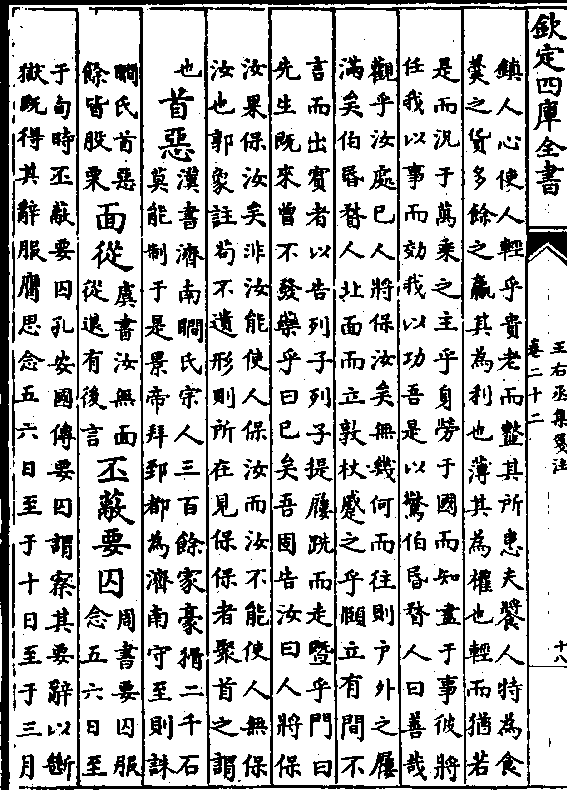 欽定四庫全書
王右丞集箋注
卷二十二
十八
鎮人心使人輕乎貴老而虀其所患夫饔人特為食
羹之貨多餘之贏其為利也薄其為權也輕而猶若
是而況于萬乘之主乎身勞于國而知盡于事彼將
任我以事而効我以功吾是以驚伯昏瞀人曰善哉
觀乎汝處已人將保汝矣無幾何而往則户外之屨
滿矣伯昏瞀人北面而立敦杖蹙之乎頤立有間不
言而出賓者以告列子列子提屨跣而走暨乎門曰
先生既來曾不發藥乎曰已矣吾固告汝曰人將保
汝果保汝矣非汝能使人保汝而汝不能使人無保
汝也郭象註苟不遺形則所在見保保者聚首之謂
也
首惡
漢書濟南瞯氏宗人三百餘家豪猾二千石
莫能制于是景帝拜郅都為濟南守至則誅
瞯氏首惡
餘皆股栗
面從
虞書汝無面
從退有後言
丕蔽要囚
周書要囚服
念五六日至
于旬時丕蔽要囚孔安國傳要囚謂察其要辭以斷
獄既得其辭服膺思念五六日至于十日至于三月